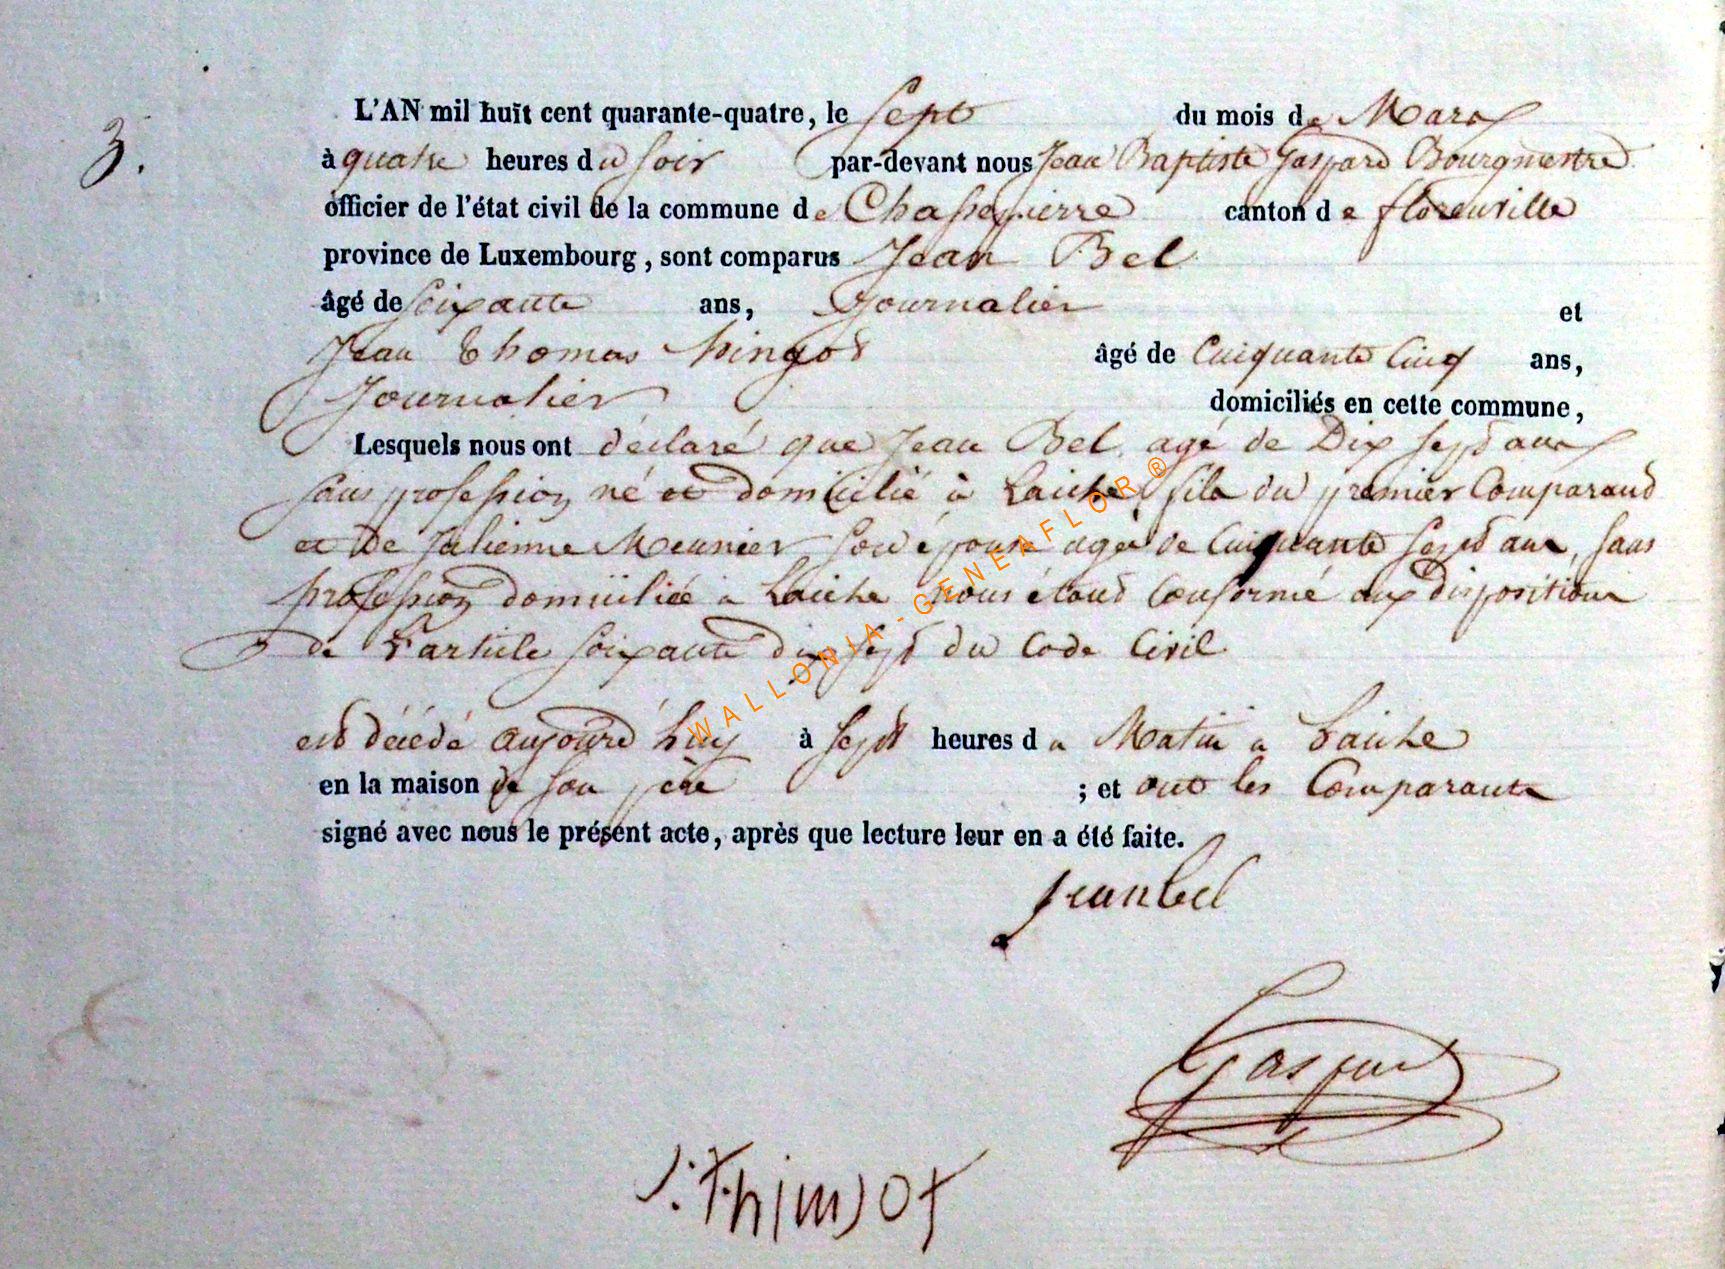 L'AN mil huit cent quarante-quatre, le Sept du mois de Mars
3.
à quatre heures du soir par-devant nous Jean Baptiste Gaspard Bourgmestre
officier de l'état civil de la commune de Chassepierre canton de florenville
province de Luxembourg, sont comparus Jean Bel
âgé de soixante ans, Journalier et
Jean Thomas hingot âgé de Cinquante Cinq ans,
Journalier domiciliés en cette commune,
Lesquels nous ont déclaré que Jean Bel agé de Dix sept ans
sans profession né et domicilié à Laiche, fils du premier Comparant
et de Julienne Meunier, son épouse agée de Cinquante sept ans, sans
profession domiciliée a Laiche nous étant conformé aux dispositions
de l'article soixante dix sept du Code Civil
est décédé aujourd'huy à sept heures du Matin a Laiche
en la maison de son père ; et ont les Comparants
signé avec nous le présent acte, après que lecture leur en a été faite.
jean bel
Gaspard
WALLONIA-GENEAFLOR®